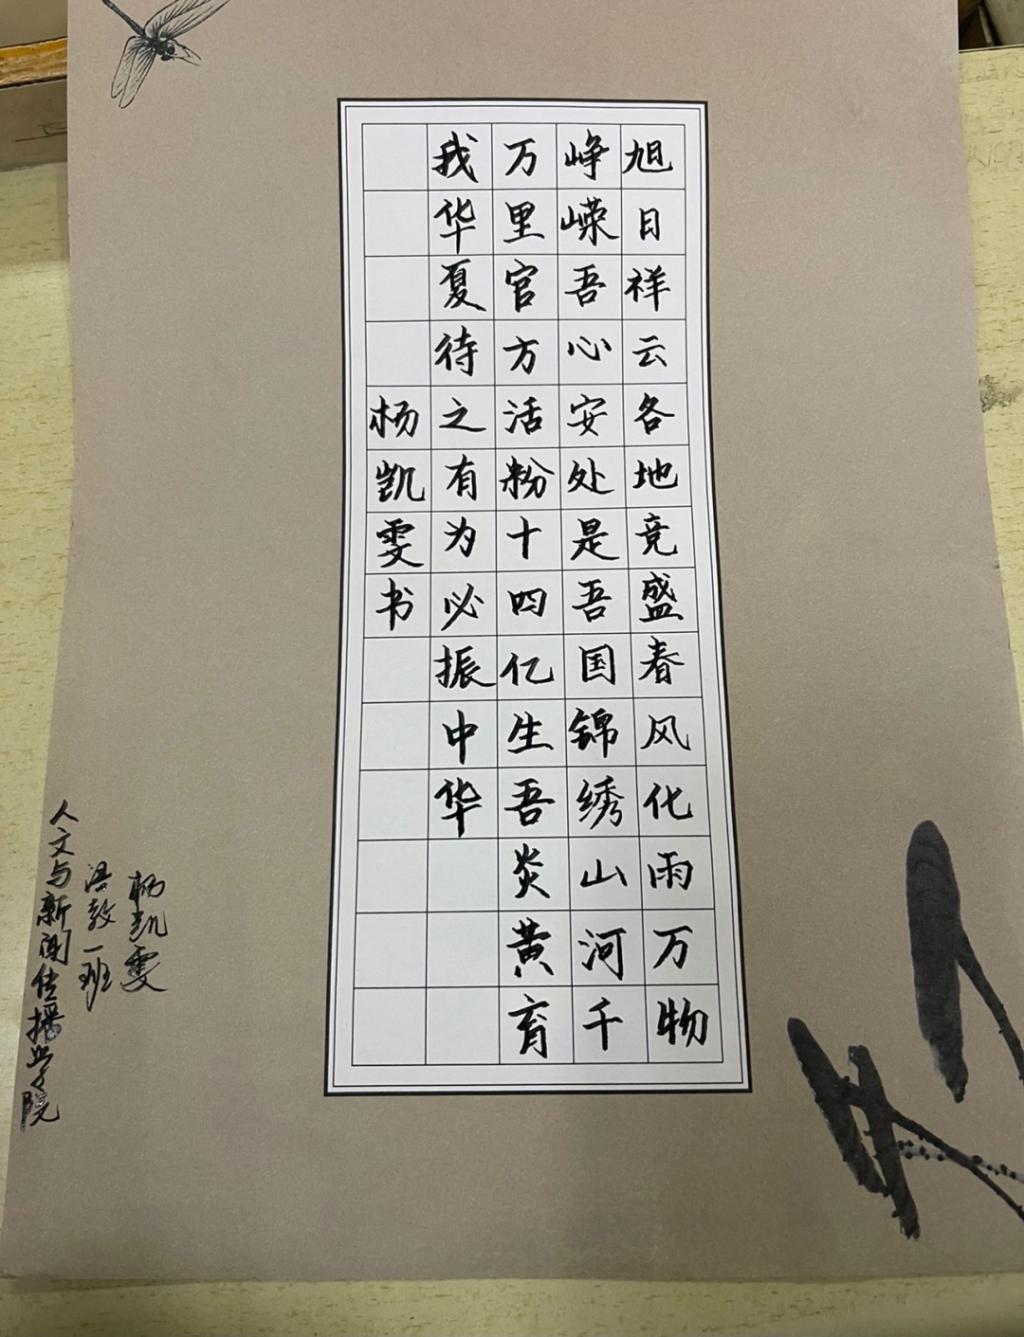 旭日祥云各地竞盛春风化雨万物
峥嵘吾心安处是吾国锦绣山河千
万里官方活粉十四亿生吾炎黄育
我华夏待之有为必振中华
杨凯雯书
杨凯雯
汉教一班
人文与新闻传播学院